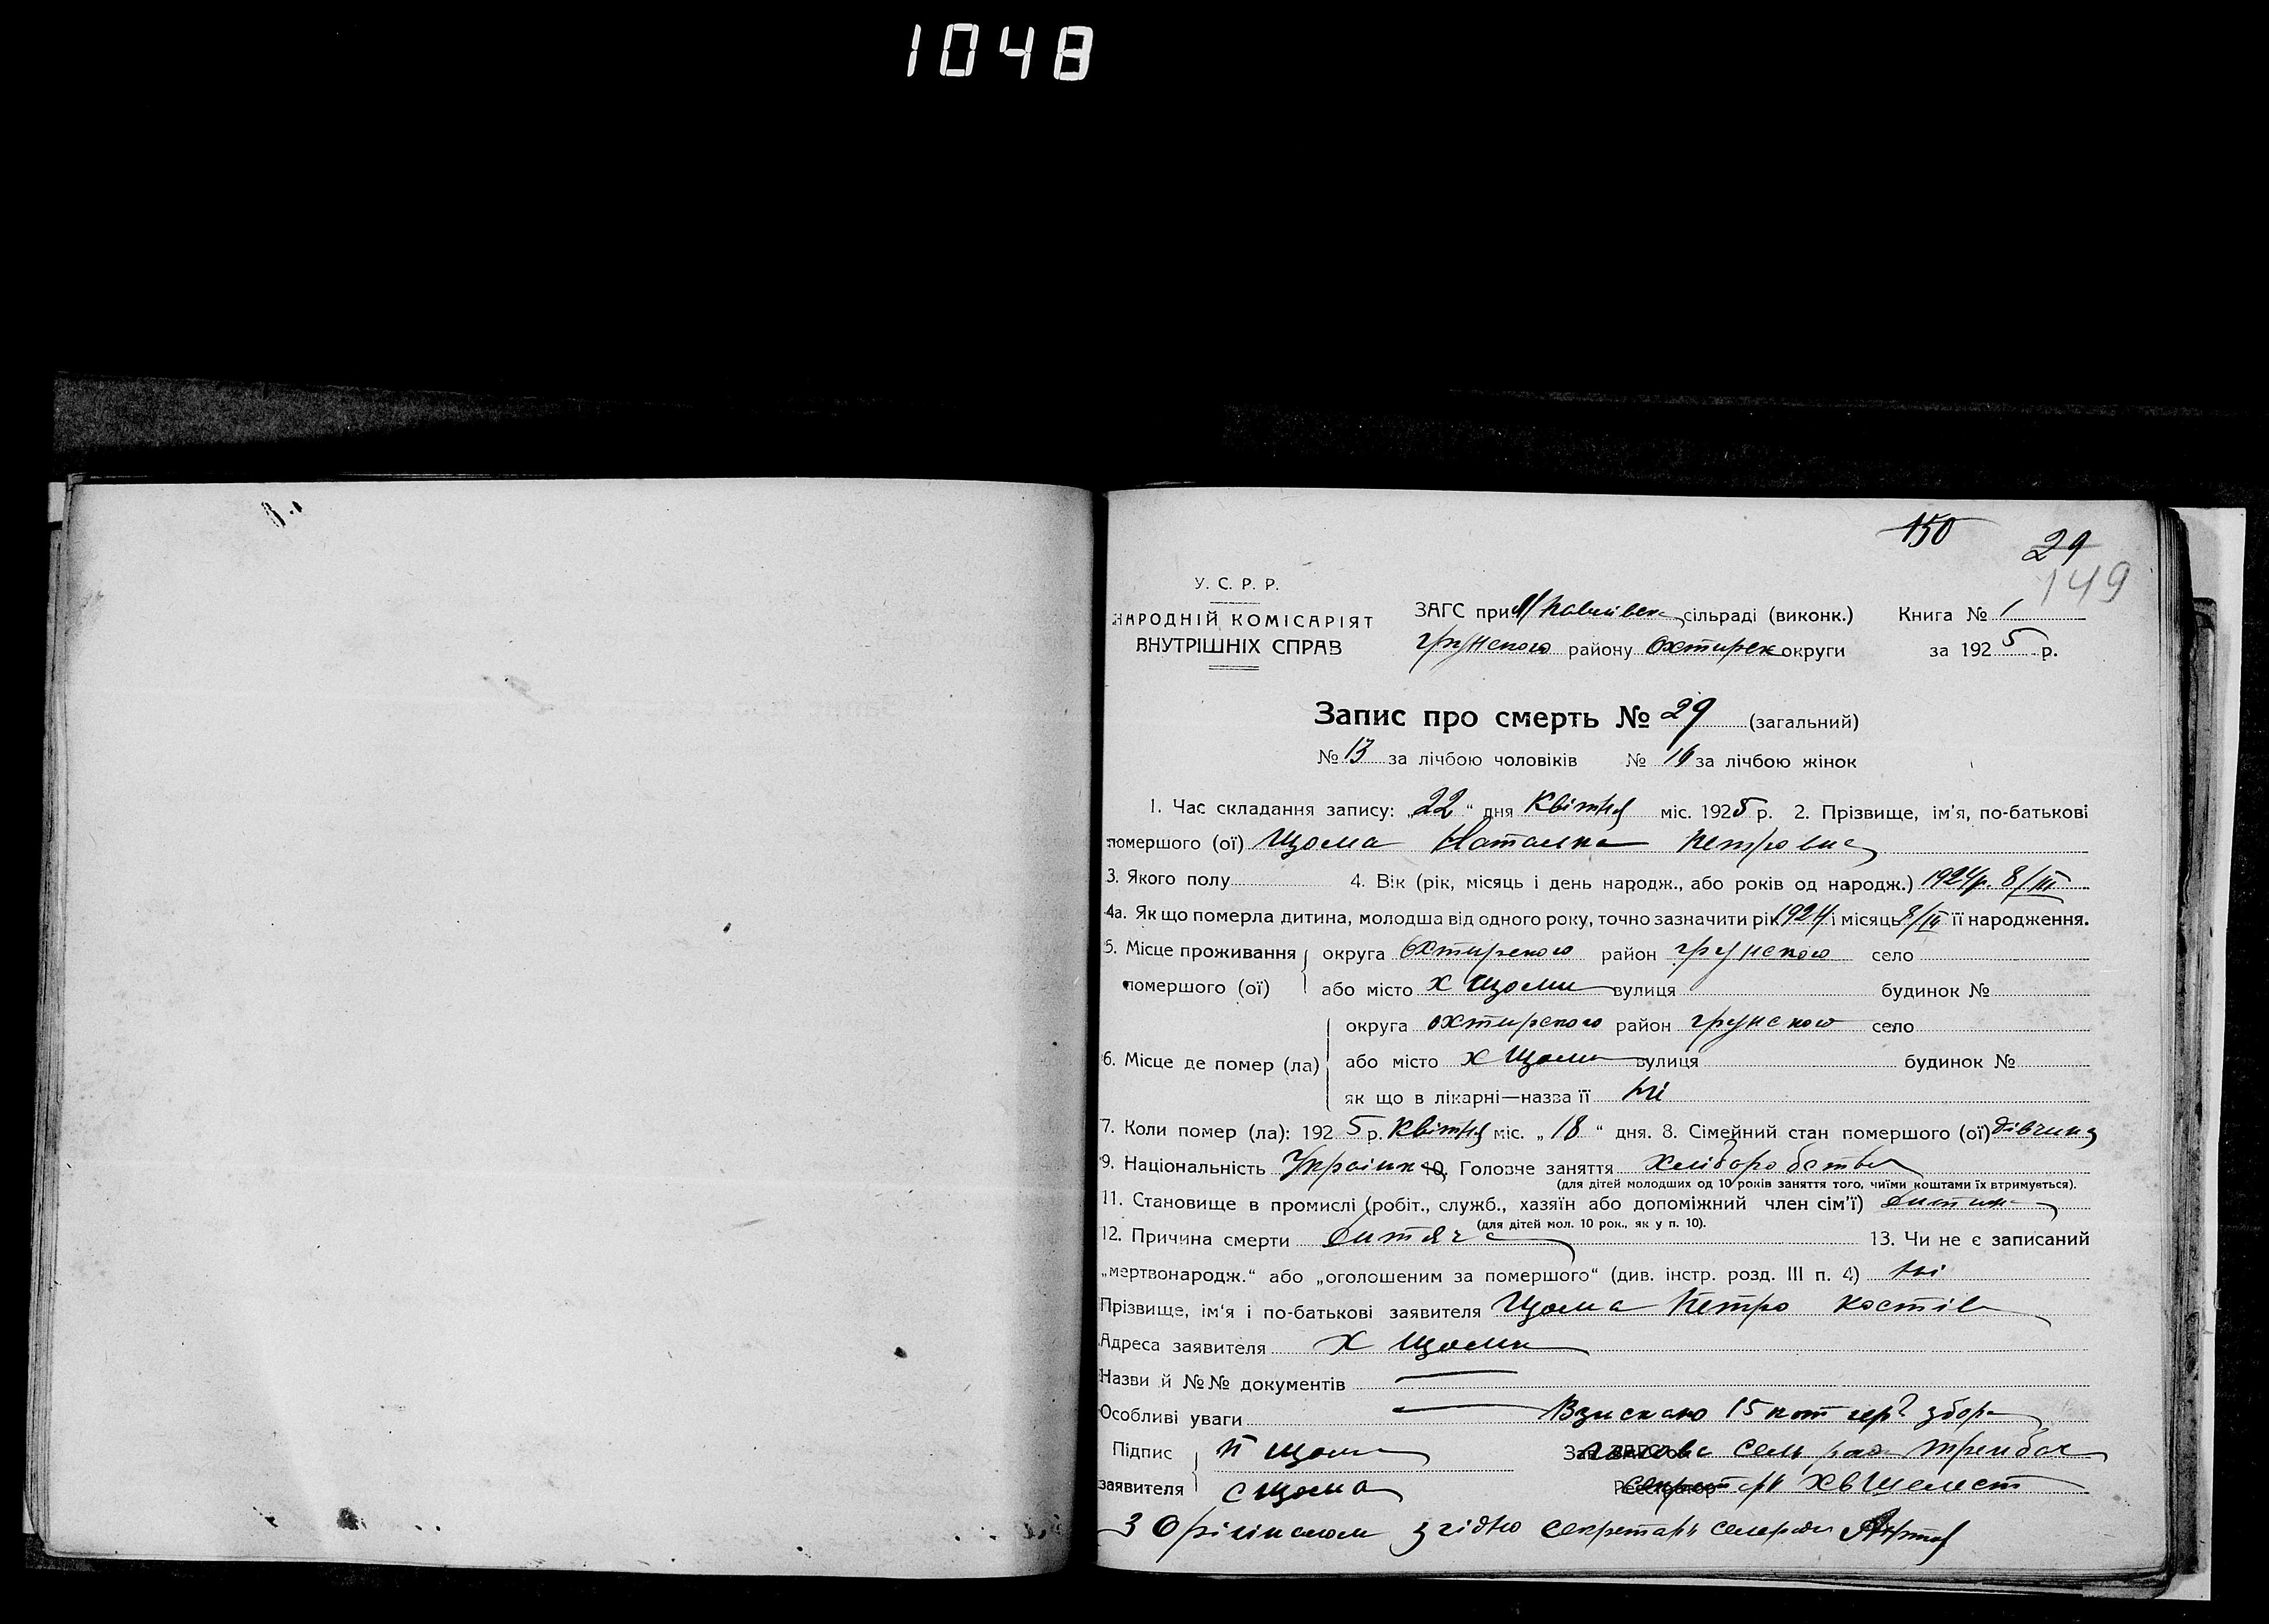 1048
150
29
149
У. С. Р. Р.
НАРОДНІЙ КОМІСАРІЯТ
ВНУТРІШНІХ СПРАВ
ЗАГС при сільраді (виконк.) Книга № 1
грунского району Охтирск округи за 1925 р.
Запис про смерть № 29 (загальний)
№ 13 за лічбою чоловіків № 16 за лічбою жінок
1. Час складання запису: „22“ дня Квітня міс. 1925 р. 2. Прізвище, ім'я, по-батькові
помершого (ої) Щома Наталка Петровна
3. Якого полу 4. Вік (рік, місяць і день народж., або років од народж.) 1924р. 8/III
4а. Як що померла дитина, молодша від одного року, точно зазначити рік 1924 і місяць її народження.
5. Місце проживання округа Охтирского район грунского село
помершого (ої) або місто х Щоми вулиця будинок №
округа охтирского район грунского село
6. Місце де помер (ла) або місто х Щоми вулиця будинок №
як що в лікарні—назва її ні
7. Коли помер (ла): 1925 р. Квітня міс. „18“ дня. 8. Сімейний стан помершого (ої) дівчина
9. Національність Україн 10. Головче заняття хліборобство
(для дітей молодших од 10 років заняття того, чиїми коштами їх втримується).
11. Становище в промислі (робіт., служб., хазяїн або допоміжний член сім'ї) дитина
(для дітей мол. 10 рок., як у п. 10).
12. Причина смерти дитяча 13. Чи не є записаний
„мертвонародж.“ або „оголошеним за помершого“ (див. інстр. розд. III п. 4) ні
Прізвище, ім'я і по-батькові заявителя Щома Петро Костів
Адреса заявителя х Щоми
Назви й №№ документів
Особливі уваги Взискано 15 коп герб збора
Підпис П Щома голова сель рад Трембач
заявителя С Щома секретарь Шелест
З Орігіналом згідно секретарь сельради